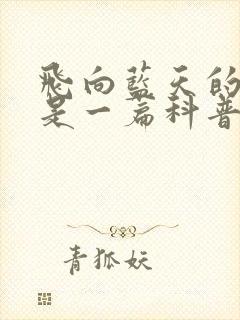 飛向藍天的
是一篇科普
青狐妖